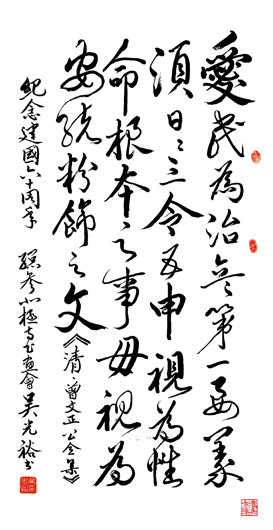 愛民為治兵第一要義
須日日三令五申視為性
命根本之事毋視為
要統粉飾之文《清·曾文正公全集》
紀念建國六十周年 總參北極寺書畫會吳光裕書